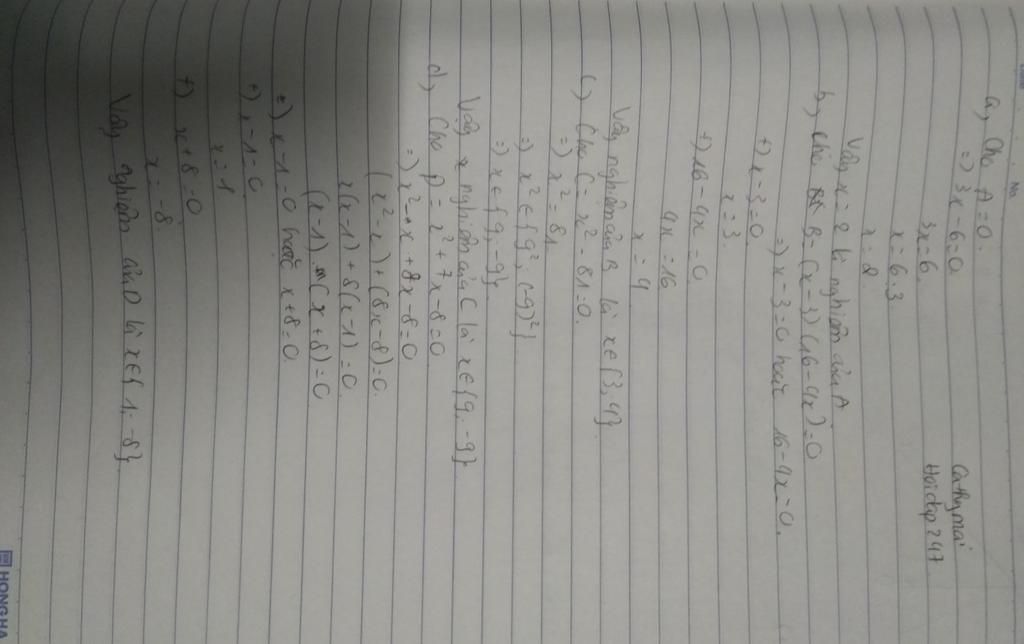 No.
a, Cho A = 0
=) 3x - 6 = 0
Cathymai
3x = 6
Hoidap247
x = 6.3
x = 2
Vậy x = 2 là nghiệm của A
b, Cho B = (x - 3)(16 - 4x) = 0
=) x - 3 = 0 hoặc 16 - 4x = 0.
+) x - 3 = 0
x = 3
+) 16 - 4x = 0
4x = 16
x = 4
Vậy nghiệm của B là x ∈ {3, 4}
c) Cho C = x² - 81 = 0.
=) x² = 81
=) x² ∈ {9²; (-9)²}
=) x ∈ {9, -9}
Vậy x nghiệm của C là x ∈ {9, -9}
d) Cho D = x² + 7x - 8 = 0
=) x² - x + 8x - 8 = 0
(x² - x) + (8x - 8) = 0
x(x - 1) + 8(x - 1) = 0
(x - 1) . (x + 8) = 0
=) x - 1 = 0 hoặc x + 8 = 0
+) x - 1 = 0
x = 1
+) x + 8 = 0
x = -8
Vậy nghiệm của D là x ∈ {1, -8}
HONGHA